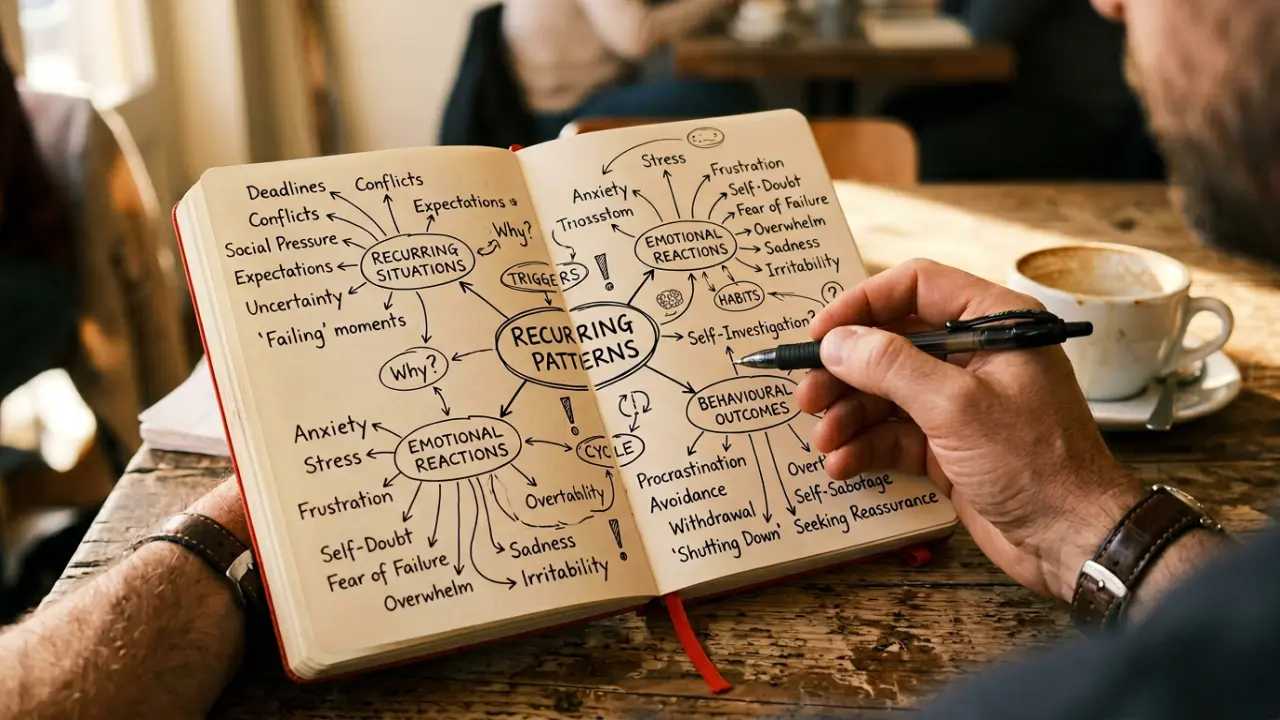 Deadlines
Conflicts
Conflicts
Expectations
Social Pressure
Expectations
Uncertainty
'Failing' moments
RECURRING
SITUATIONS
Why?
TRIGGERS
Why?
RECURRING
PATTERNS
Anxiety
Stress
Frustration
Self-Doubt
Fear of Failure
Overwhelm
EMOTIONAL
REACTIONS
CYCLE
Overtability
Sadness
Irritability
Stress
Anxiety
Triosstom
Frustration
Self-Doubt
Fear of Failure
Overwhelm
Sadness
Irritability
EMOTIONAL
REACTIONS
!
HABITS
?
Self-Investigation?
BEHAVIOURAL
OUTCOMES
!
Procrastination
Avoidance
Withdrawal
'Shutting Down'
Self-Sabotage
Seeking Reassurance
!